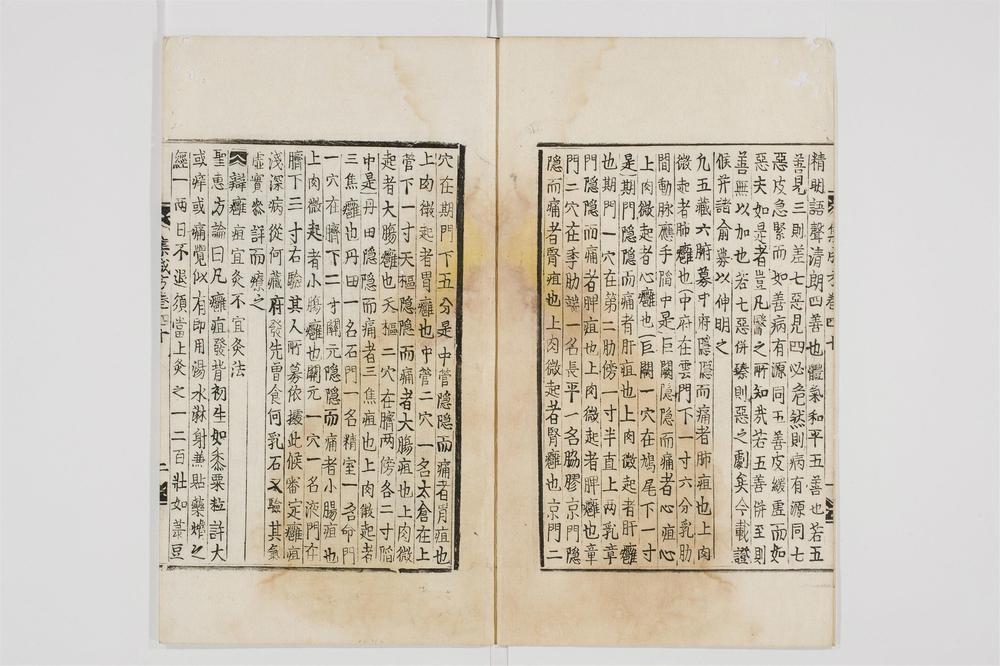 集成方卷四十
精明語聲清朗四善也體氣和平五善也若五
善見三則差七惡見四必危然則病有源同七
惡皮急緊而如善病有源同五善皮緩虛而如
惡夫如是者豈凡醫之所知哉若五善併至則
善無以加也若七惡併臻則惡之劇矣今載證
候并諸俞募以伸明之
九五藏六腑募中府隱隱而痛者肺疽也上肉
微起者肺癰也中府在雲門下一寸六分乳肋
間動脉應手陷中是巨闕隱隱而痛者心疽心
上肉微起者心癰也巨闕一穴在鳩尾下一寸
是期門隱隱而痛者肝疽也上肉微起者肝癰
也期門一穴在第二肋傍一寸半直上兩乳章
門隱隱而痛者脾疽也上肉微起者脾癰也章
門二穴在季肋端一名長平一名脇膠京門隱
隱而痛者腎疽也上肉微起者腎癰也京門二
穴在期門下五分是中管隱隱而痛者胃疽也
上肉微起者胃癰也中管二穴一名太倉在上
管下一寸天樞隱隱而痛者大腸疽也上肉微
起者大腸癰也天樞二穴在臍兩傍各二寸陷
中是丹田隱隱而痛者三焦疽也上肉微起者
三焦癰也丹田一名石門一名精室一名命門
一穴在臍下二寸關元隱隱而痛者小腸疽也
上肉微起者小腸癰也關元一穴一名液門在
臍下三寸右驗其人所募依據此候審定癰疽
淺深病從何藏府發先曾食何乳石又驗其氣
虛實參詳而療之
辯癰疽宜灸不宜灸法
聖惠方論曰凡癰疽發背初生如黍粟粒許大
或痒或痛覺似有即用湯水淋射兼貼藥㷟之
經一兩日不退須當上灸之一二百壯如菉豆
集成方卷四十
二